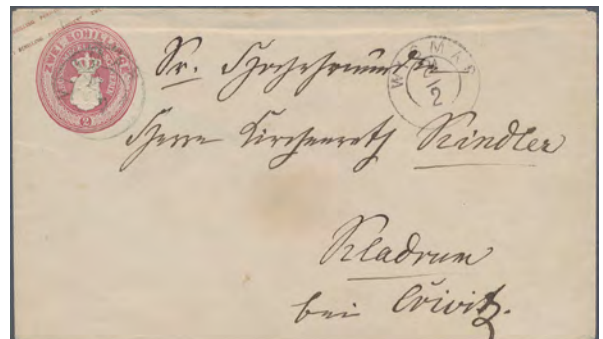 ZWEI SCHILLING
2
WISMAR
12
Sr. Hochehrwürden
Herrn Kirchenrath Kindler
Kladrum
bei Crivitz.